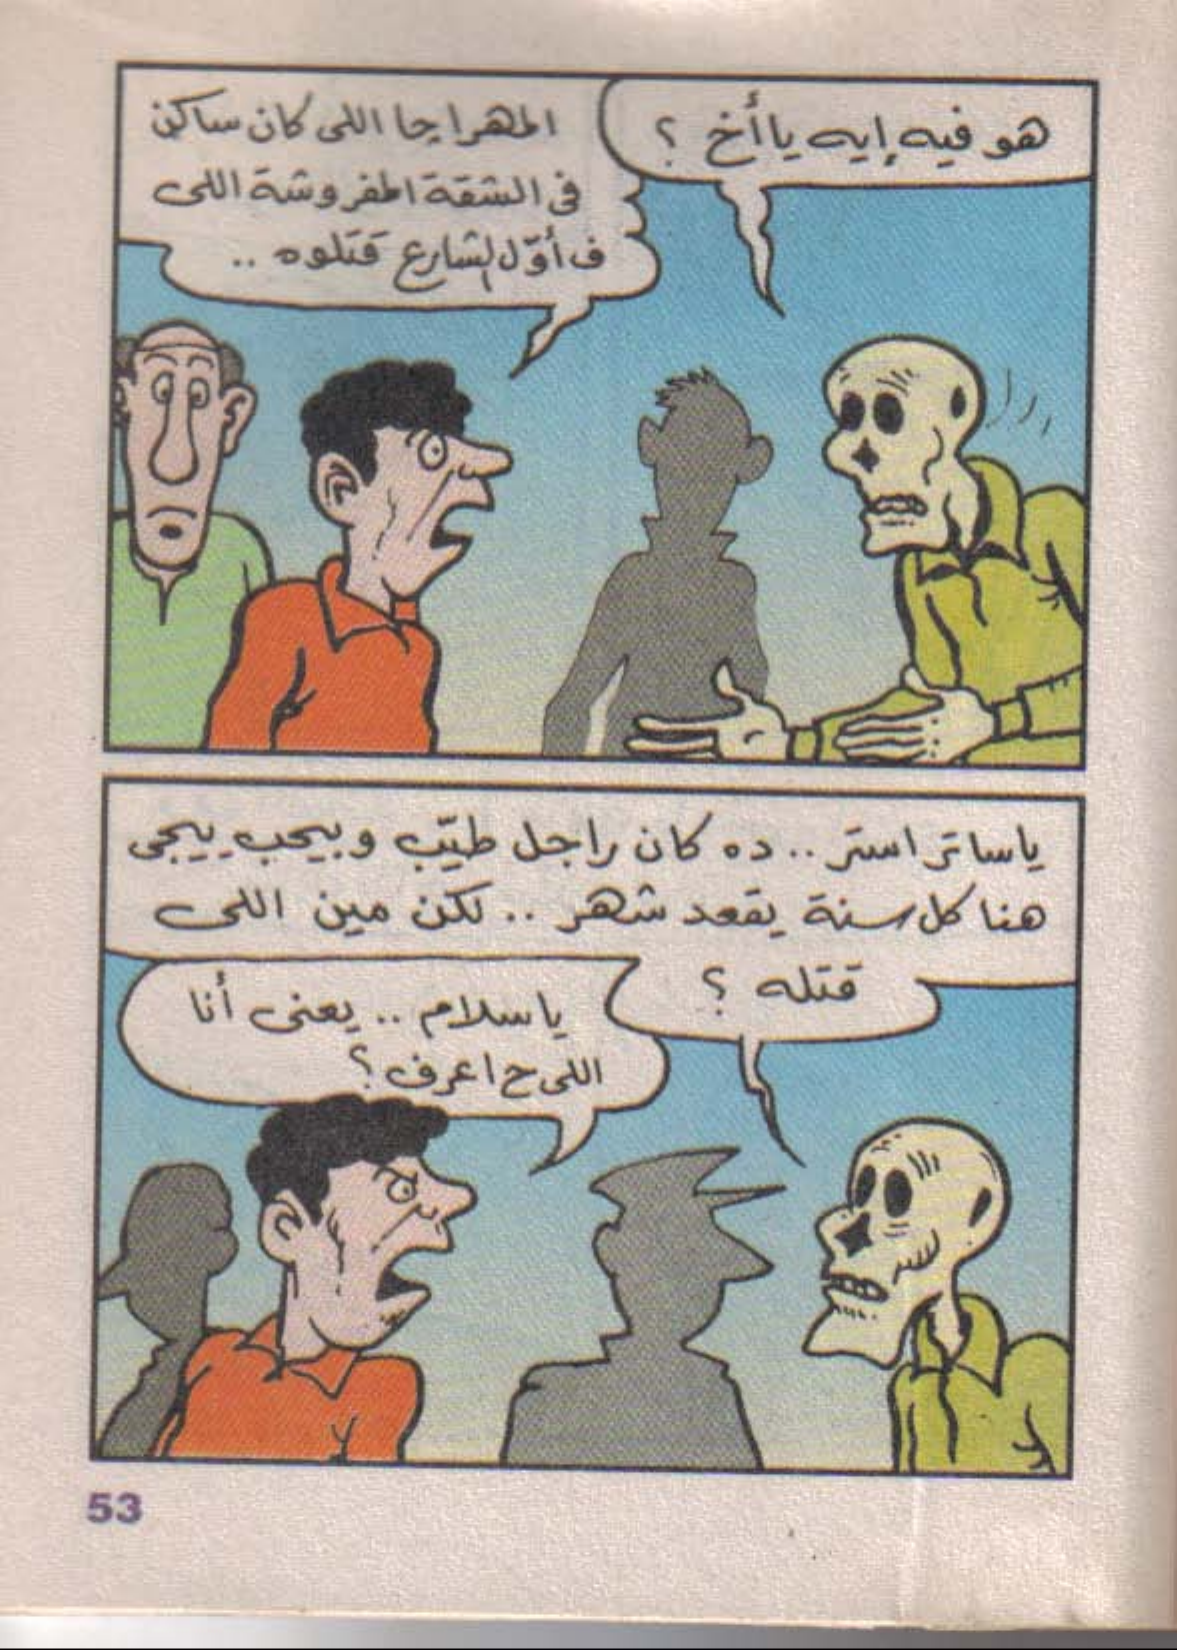 هو فيه إيه يا أخ ؟
المهراجا اللى كان ساكن
فى الشقة المفروشة اللى
ف أوّل الشارع قتلوه ..
ياساتر استر .. ده كان راجل طيّب وبيحب ييجى
هنا كل سنة يقعد شهر .. لكن مين اللى
قتله ؟
ياسلام .. يعنى أنا
اللى ح اعرف ؟
53